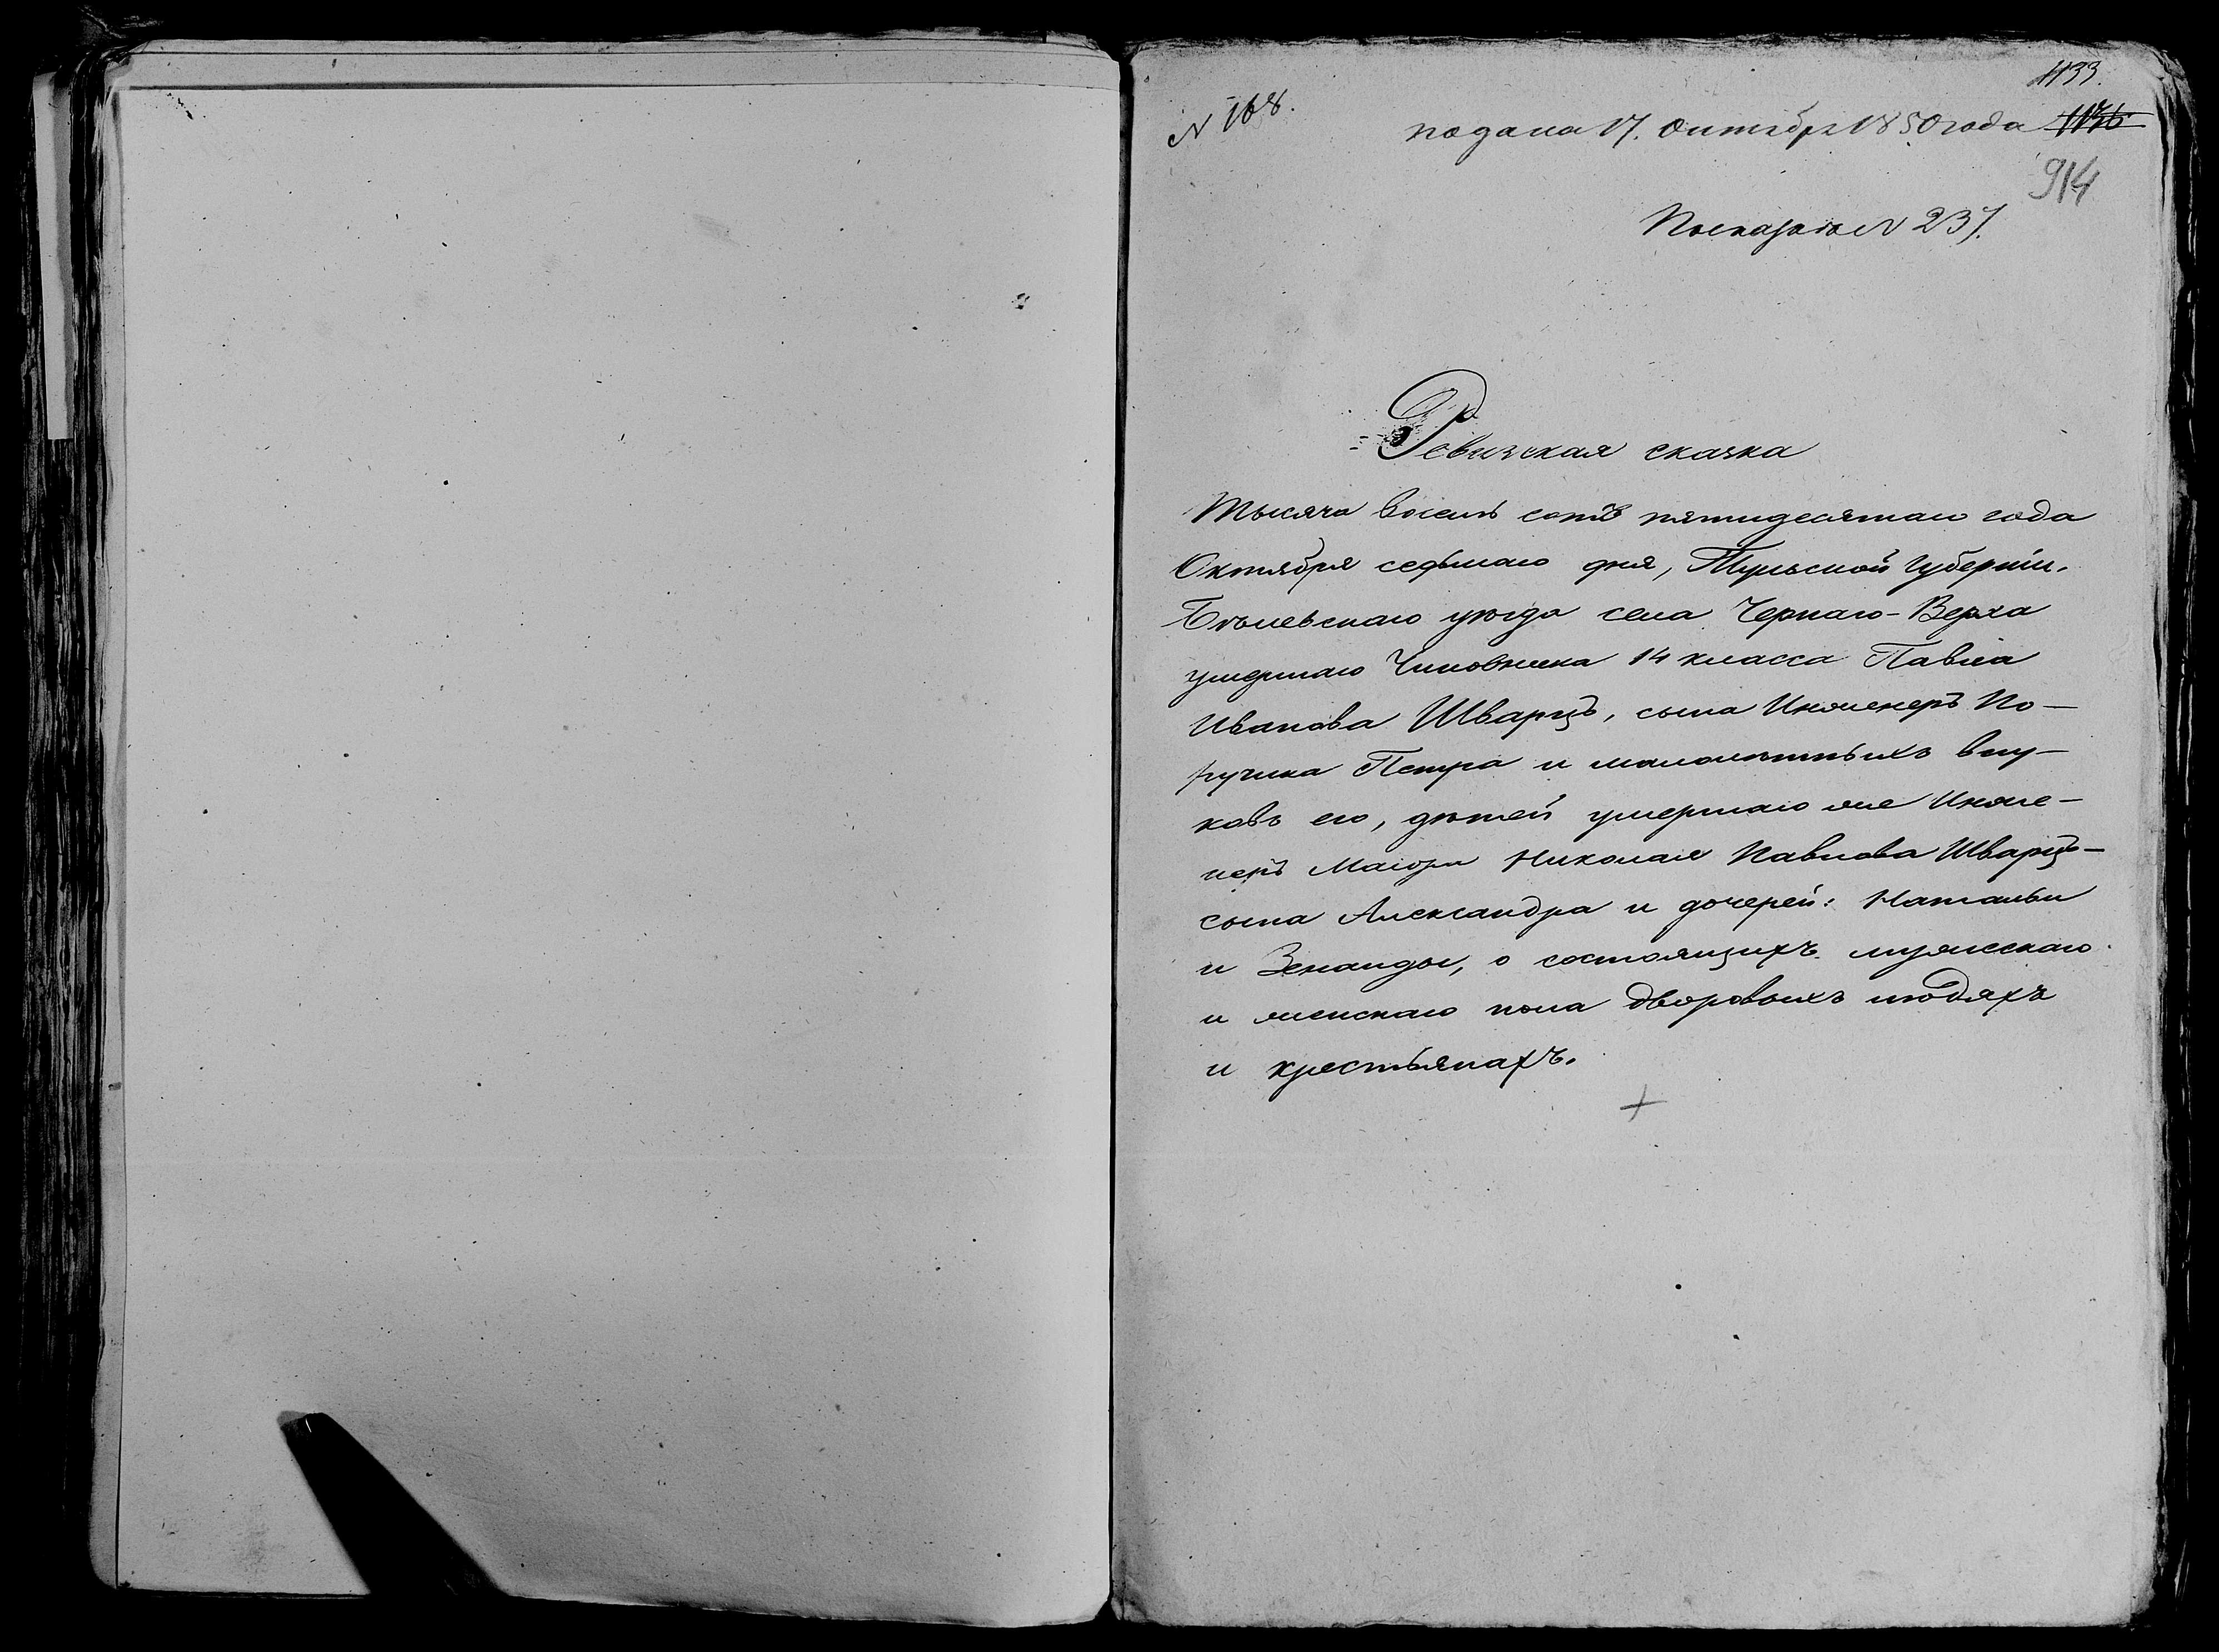 1133.
№ 168.
подана 17. Октября 1850 года 1136
914
По сказкѣ № 237.
Ревизская сказка
Тысяча восемь сотъ пятидесятаго года
Октября седьмаго дня, Тульской губерніи.
Бѣлевскаго уѣзда села Чернаго-Верха
умершаго Чиновника 14 класса Павла
Иванова Шварцъ, сына Инженеръ По-
ручика Петра и малолѣтныхъ вну-
ковъ его, дѣтей умершаго же Инже-
неръ Маіора Николая Павлова Шварцъ-
сына Александра и дочерей: Натальи
и Зенаиды, о состоящихъ мужескаго
и женскаго пола дворовыхъ людяхъ
и крестьянахъ.